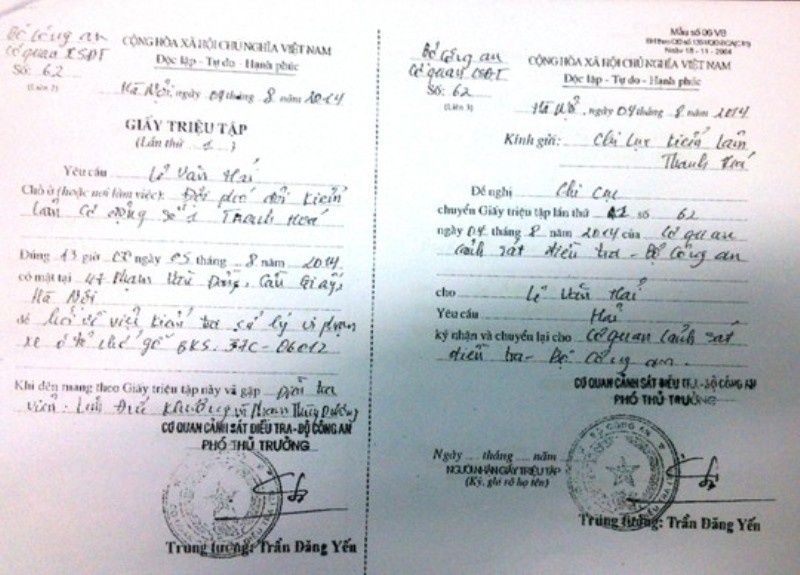 Bộ Công an
Cơ quan CSĐT
Số: 62
(Liên 2)
CỘNG HÒA XÃ HỘI CHỦ NGHĨA VIỆT NAM
Độc lập - Tự do - Hạnh phúc
Hà Nội, ngày 04 tháng 8 năm 2014
GIẤY TRIỆU TẬP
(Lần thứ 1)
Yêu cầu Lê Văn Hải
Chỗ ở (hoặc nơi làm việc): Đội phó đội kiểm
lâm cơ động số 1 Thanh Hoá
Đúng 13 giờ 00 ngày 05 tháng 8 năm 2014
có mặt tại 47 Phạm Văn Đồng, Cầu Giấy,
Hà Nội
để hỏi về việc kiểm tra, xử lý vi phạm
xe ô tô chở gỗ BKS: 37C-06012
Khi đến mang theo Giấy triệu tập này và gặp điều tra
viên: Đức Khường và Phạm Thùy Dương
CƠ QUAN CẢNH SÁT ĐIỀU TRA-BỘ CÔNG AN
PHÓ THỦ TRƯỞNG
Trung tướng: Trần Đăng Yến
Mẫu số 06 VB
Ngày 18 - 11 - 2004
Bộ Công an
Cơ quan CSĐT
Số: 62
(Liên 3)
CỘNG HÒA XÃ HỘI CHỦ NGHĨA VIỆT NAM
Độc lập - Tự do - Hạnh phúc
Hà Nội, ngày 04 tháng 8 năm 2014
Kính gửi: Chi cục kiểm lâm
Thanh Hoá
Đề nghị Chi cục
chuyển Giấy triệu tập lần thứ 1 số 62
ngày 04 tháng 8 năm 2014 của Cơ quan
cảnh sát điều tra - Bộ Công an
cho Lê Văn Hải
Yêu cầu Hải
ký nhận và chuyển lại cho Cơ quan cảnh sát
điều tra - Bộ Công an.
CƠ QUAN CẢNH SÁT ĐIỀU TRA -BỘ CÔNG AN
PHÓ THỦ TRƯỞNG
Ngày tháng năm
NGƯỜI NHẬN GIẤY TRIỆU TẬP
(Ký, ghi rõ họ tên)
Trung tướng: Trần Đăng Yến